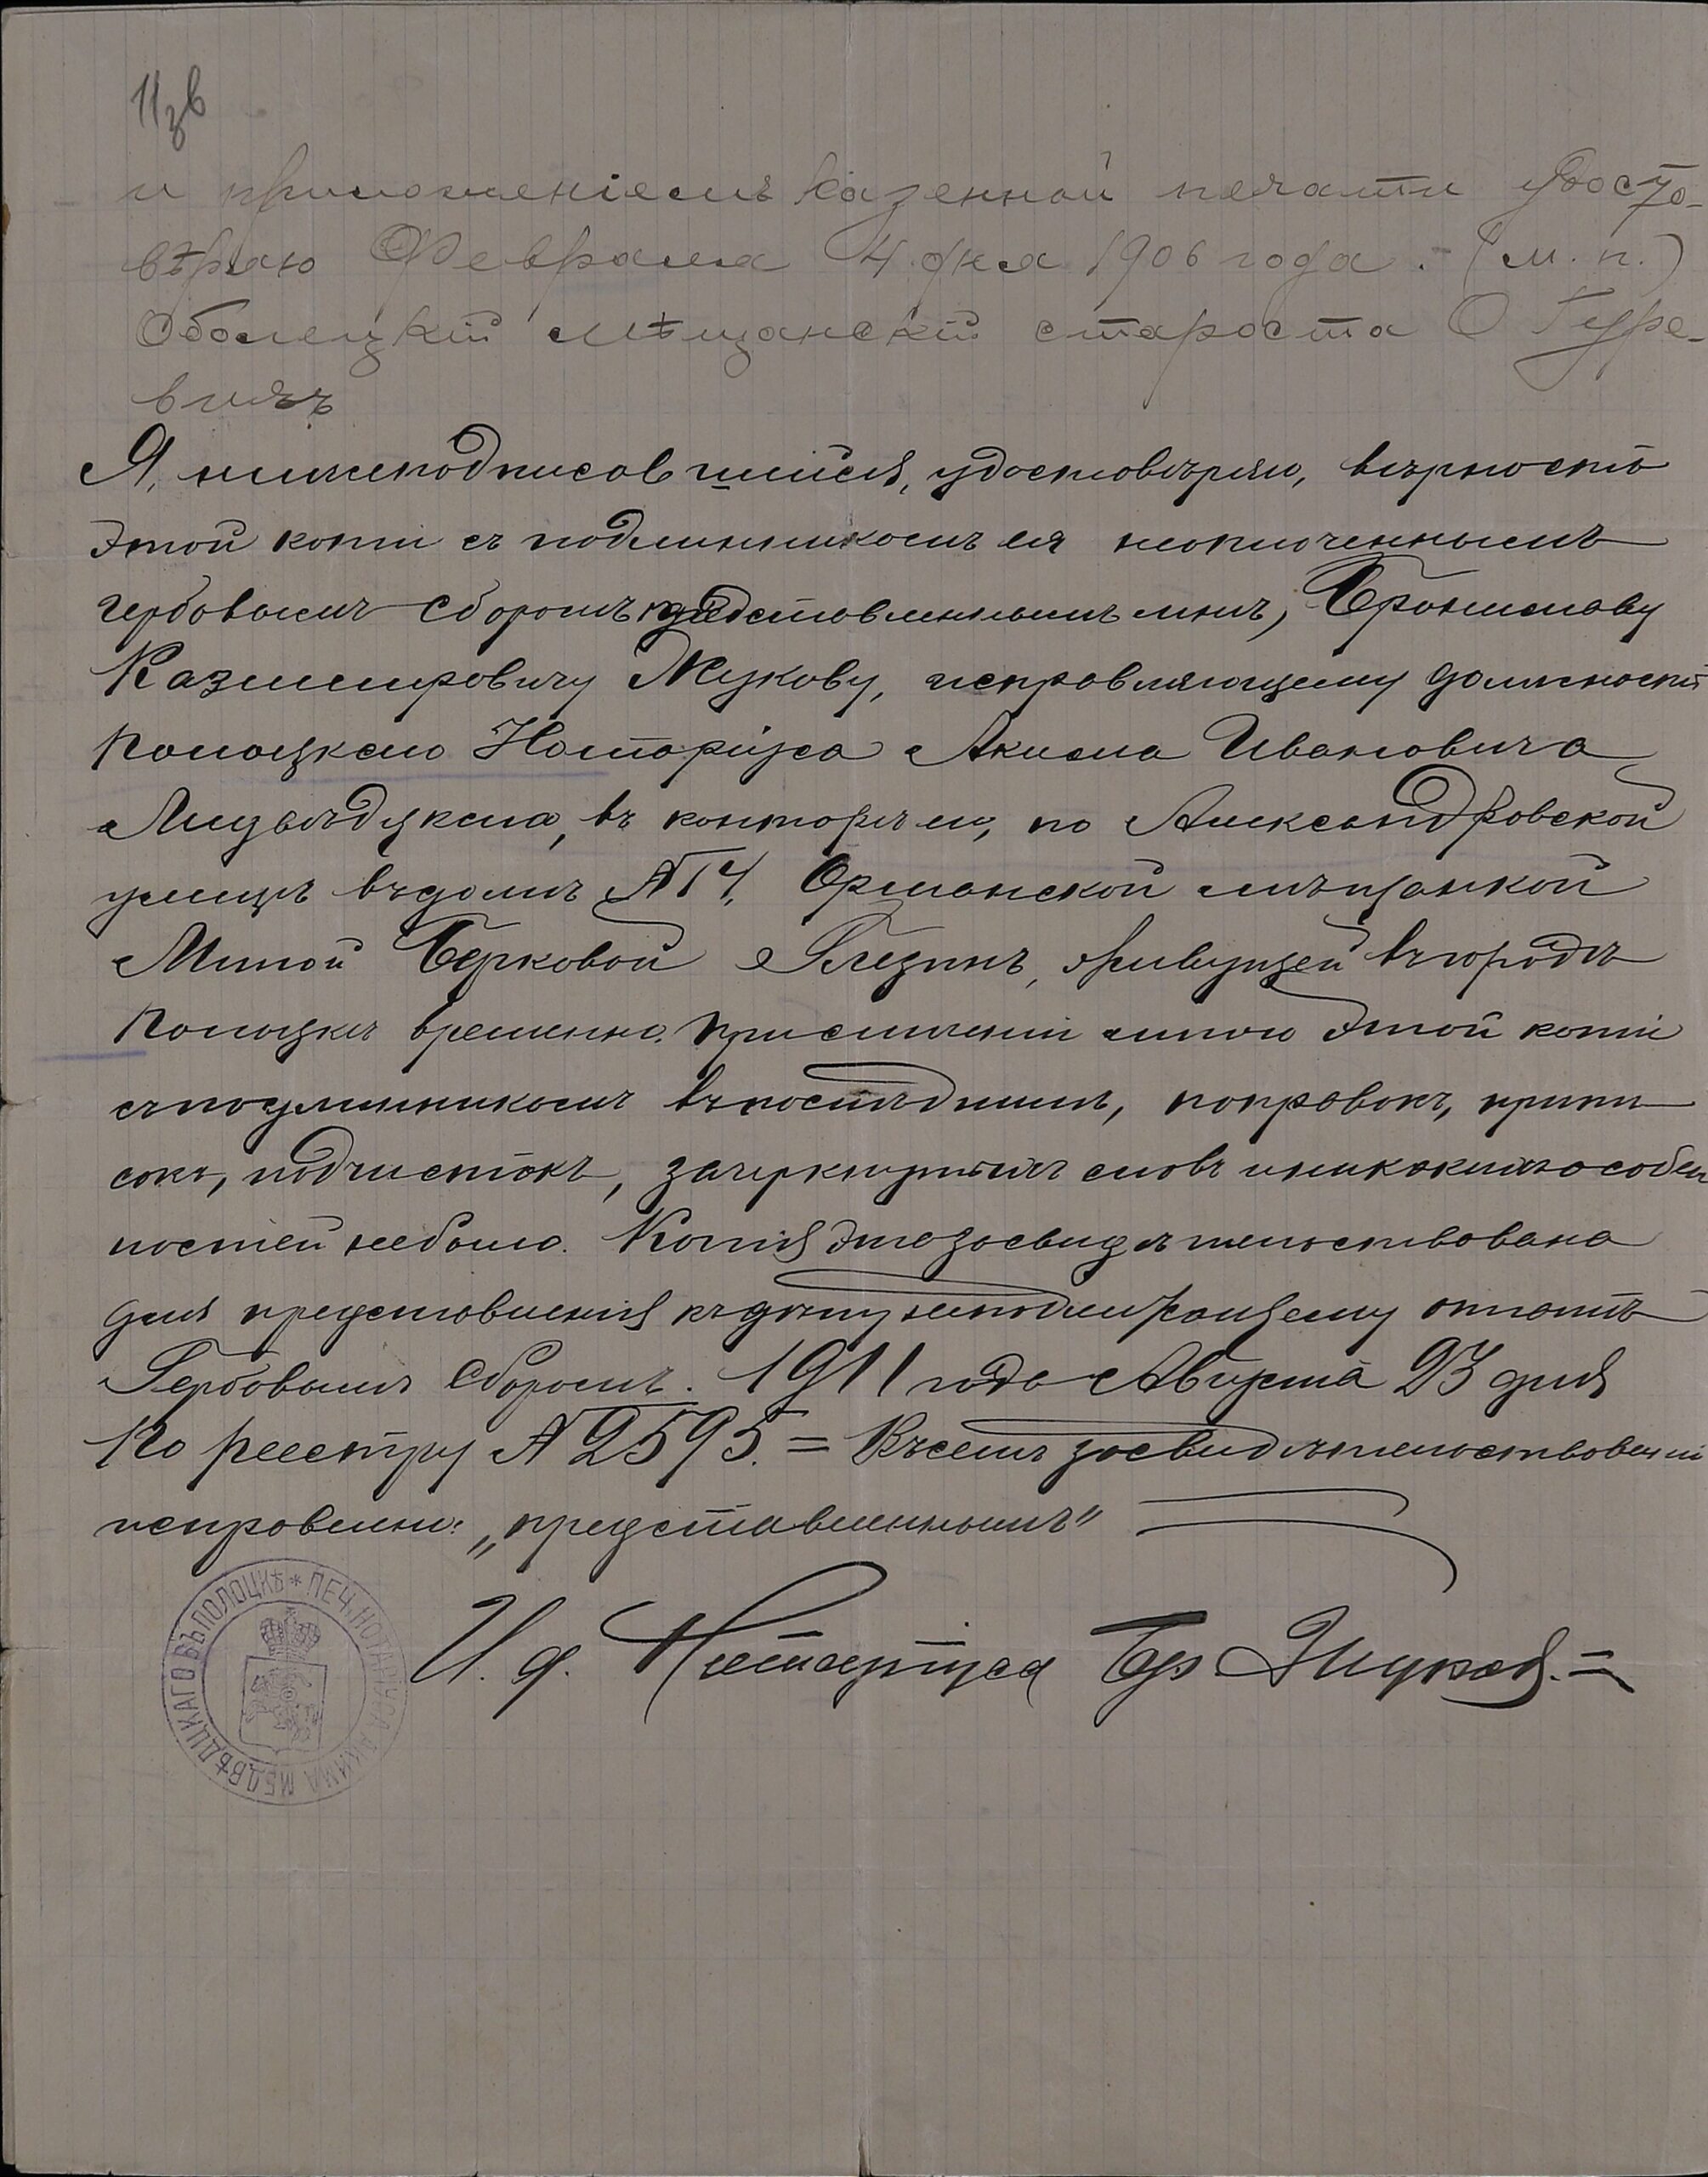 11 зв
и приложеніемъ казенной печати удосто-
вѣряю Февраля 4 дня 1906 года. (м. п.)
Оболецкій мѣщанскій староста О Гуре-
вичъ
Я, нижеподписавшийся, удостовѣряю, вѣрность
этой копіи съ подлинникомъ ея неоплоченнымъ
гербовымъ сборомъ представленнымъ мнѣ, Брониславу
Казимировичу Жукову, исправляющему должность
Полоцкаго Нотаріуса Акима Ивановича
въ конторѣ его, по Александровской
улицѣ въ домѣ № 4, Оршанской мѣщанкой
Миной Берковой Глезинъ, живущей въ городѣ
Полоцкѣ временно. При сличеніи мною этой копіи
съ подлинникомъ въ послѣднимъ, поправокъ, припи
сокъ, подчистокъ, зачеркнутыхъ словъ и никакихъ особен
ностей не было. Копія эта засвидѣтельствована
для представленія къ дѣлу неподлежащему оплатѣ
Гербовымъ Сборомъ. 1911 года Августа 23 дня
По реестру № 2595. = Въ семъ засвидѣтельствованіи
исправлено: „представленнымъ"
И. д. Нотаріуса Бр Жуковъ. =
ПЕЧ. НОТАРІУСА АКИМА МЕДВѢДЦКАГО ВЪ ПОЛОЦКѢ *